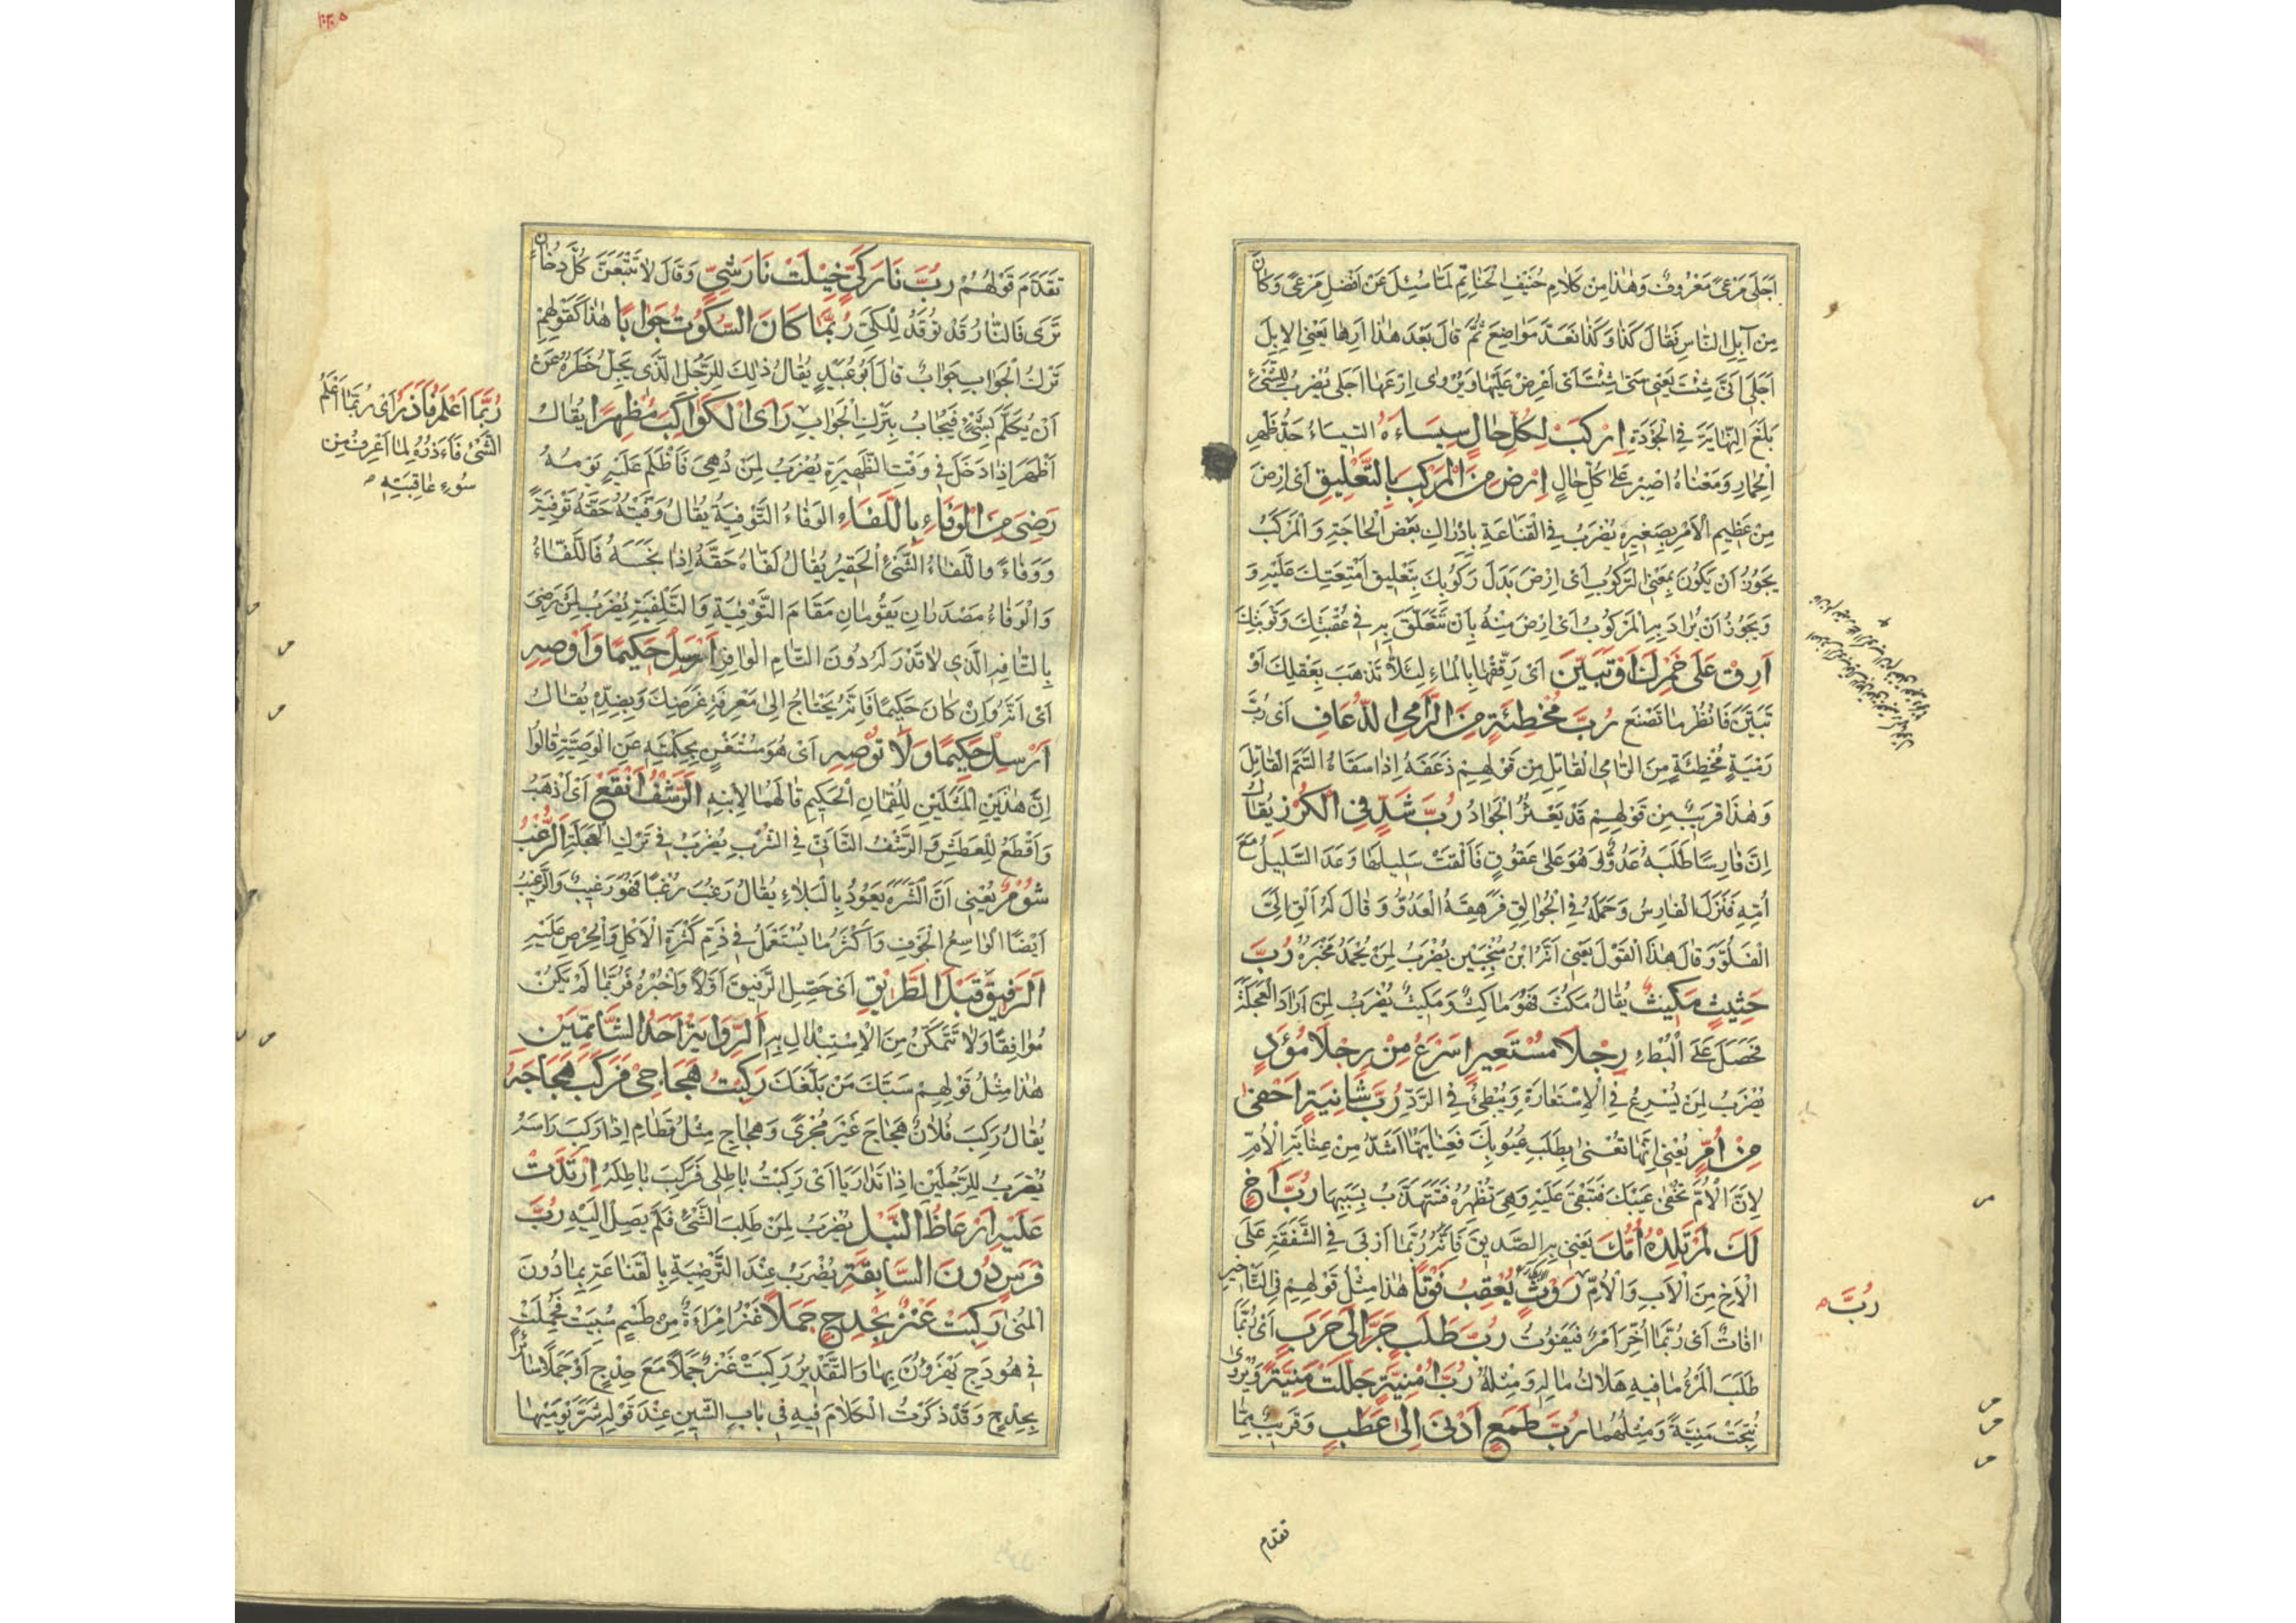 اَجَلَى مَرْعًى مَعْرُوفٌ وَهٰذَا مِنْ كَلَامِ حُنَيْفِ الْحَنَاتِمِ لَمَّا سُئِلَ عَنْ اَفْضَلِ مَرْعًى وَكَانَ
مِنْ آبِلِ النَّاسِ فَقَالَ كَذَا وَكَذَا فَعَدَّ مَوَاضِعَ ثُمَّ قَالَ بَعْدَ هٰذَا اَرِهَا يَعْنِي الْاِبِلَ
اَجَلَى اَنَّى شِئْتَ يَعْنِي مَتَى شِئْتَ اَىْ اَعْرِضْ عَلَيْهَا وَيُرْوٰى اِرْعَهَا اَجَلَى يُضْرَبُ لِلشَّىْءِ
بَلَغَ النِّهَايَةَ فِي الْجَوْدَةِ اِرْكَبْ لِكُلِّ حَالٍ سِيسَاءَهُ السِّيسَاءُ حَدُّ ظَهْرِ
الْحِمَارِ وَمَعْنَاهُ اصْبِرْ عَلٰى كُلِّ حَالٍ اِرْضَ مِنَ الْمَرْكَبِ بِالتَّعْلِيقِ اَىْ اِرْضَ
مِنْ عَظِيمِ الْاَمْرِ بِصَغِيرِهِ يُضْرَبُ فِي الْقَنَاعَةِ بِاِدْرَاكِ بَعْضِ الْحَاجَةِ وَالْمَرْكَبُ
يَجُوزُ اَنْ يَكُونَ بِمَعْنَى الرُّكُوبِ اَىْ اِرْضَ بَدَلَ رُكُوبِكَ بِتَعْلِيقِ اَمْتِعَتِكَ عَلَيْهِ وَ
وَيَجُوزُ اَنْ يُرَادَ بِهِ الْمَرْكُوبُ اَىْ اِرْضَ مِنْهُ بِاَنْ تَتَعَلَّقَ بِهِ فِي عُقْبَتِكَ وَنَوْبَتِكَ
اَرِقْ عَلَى خَمْرِكَ اَوْ تَبَيَّنْ اَىْ رَقِّقْهَا بِالْمَاءِ لِئَلَّا تَذْهَبَ بِعَقْلِكَ اَوْ
تَبَيَّنْ فَانْظُرْ مَا تَصْنَعُ رُبَّ مُخْطِئَةٍ مِنَ الرَّامِي الذُّعَافِ اَىْ رُبَّ
رَمْيَةٍ مُخْطِئَةٍ مِنَ الرَّامِي الْقَاتِلِ مِنْ قَوْلِهِمْ ذَعَفَهُ اِذَا سَقَاهُ السَّمَّ الْقَاتِلَ
وَهٰذَا قَرِيبٌ مِنْ قَوْلِهِمْ قَدْ يَعْثُرُ الْجَوَادُ رُبَّ شَدٍّ فِي الْكُرْزِ يُقَالُ
اِنَّ فَارِسًا طَلَبَهُ عَدُوٌّ وَهُوَ عَلَى عَقُوقٍ فَاَلْقَتْ سَلِيلَهَا وَعَدَا السَّلِيلُ مَعَ
اُمِّهِ فَنَزَلَ الْفَارِسُ وَحَمَلَهُ فِي الْجُوَالِقِ فَرَهِقَهُ الْعَدُوُّ وَقَالَ لَهُ اَلْقِ اِلَىَّ
الْفَلُوَّ وَقَالَ هٰذَا الْقَوْلَ يَعْنِي اَنَّهُ ابْنُ مُنْجِبَيْنِ يُضْرَبُ لِمَنْ يُحْمَدُ مَخْبَرُهُ رُبَّ
حَثِيثٍ مَكِيثٌ يُقَالُ مَكُثَ فَهُوَ مَاكِثٌ وَمَكِيثٌ يُضْرَبُ لِمَنْ اَرَادَ الْعَجَلَةَ
فَحَصَلَ عَلَى الْبُطْءِ رِجْلَا مُسْتَعِيرٍ اَسْرَعُ مِنْ رِجْلَا مُؤَدٍّ
يُضْرَبُ لِمَنْ يُسْرِعُ فِي الْاِسْتِعَارَةِ وَيُبْطِئُ فِي الرَّدِّ رُبَّ شَانِيَةٍ اَحْفَى
مِنْ اُمٍّ يَعْنِي اَنَّهَا تُعْنَى بِطَلَبِ عُيُوبِكَ فَعِنَايَتُهَا اَشَدُّ مِنْ عِنَايَةِ الْاُمِّ
لِاَنَّ الْاُمَّ تُخْفِي عَيْبَكَ فَتَبْقَى عَلَيْهِ وَهِيَ تُظْهِرُهُ فَتَتَهَذَّبُ بِسَبَبِهَا رُبَّ اَخٍ
لَكَ لَمْ تَلِدْهُ اُمُّكَ يَعْنِي بِهِ الصَّدِيقَ فَاِنَّهُ رُبَّمَا اَرْبَى فِي الشَّفَقَةِ عَلَى
الْاَخِ مِنَ الْاَبِ وَالْاُمِّ رَوْثٌ يُعْقِبُ فَوْتًا هٰذَا مِثْلُ قَوْلِهِمْ فِي التَّاْخِيرِ
اٰفَاتٌ اَىْ رُبَّمَا اُخِّرَ اَمْرٌ فَيَفُوتُ رُبَّ طَلَبٍ جَرَّ اِلَى حَرَبٍ اَىْ رُبَّمَا
طَلَبَ الْمَرْءُ مَا فِيهِ هَلَاكُ مَالِهِ وَمِثْلُهُ رُبَّ اُمْنِيَّةٍ جَلَبَتْ مَنِيَّةً وَيُرْوٰى
نُتِجَتْ مَنِيَّةً وَمِثْلُهُمَا رُبَّ طَمَعٍ اَدْنَى اِلَى عَطَبٍ وَقَرِيبٌ مِمَّا
رُبَّ
تقدم
تَقَدَّمَ قَوْلُهُمْ رُبَّ نَارِ كَيٍّ خِيلَتْ نَارَ شَيٍّ وَقَالَ لَا تَتْبَعَنَّ كُلَّ دُخَانٍ
تَرَى فَالنَّارُ قَدْ تُوقَدُ لِلْكَيِّ رُبَّمَا كَانَ السُّكُوتُ جَوَابًا هٰذَا كَقَوْلِهِمْ
تَرْكُ الْجَوَابِ جَوَابٌ قَالَ اَبُو عُبَيْدٍ يُقَالُ ذٰلِكَ لِلرَّجُلِ الَّذِي يَجِلُّ خَطَرُهُ عَنْ
اَنْ يُكَلَّمَ بِشَىْءٍ فَيُجَابُ بِتَرْكِ الْجَوَابِ رَاَى الْكَوَاكِبَ مُظْهِرًا يُقَالُ
اَظْهَرَ اِذَا دَخَلَ فِي وَقْتِ الظَّهِيرَةِ يُضْرَبُ لِمَنْ دُهِيَ فَاَظْلَمَ عَلَيْهِ يَوْمُهُ
رَضِيَ مِنَ الْوَفَاءِ بِاللَّفَاءِ الْوَفَاءُ التَّوْفِيَةُ يُقَالُ وَفَّيْتُهُ حَقَّهُ تَوْفِيَةً
وَوَفَاءً وَاللَّفَاءُ الشَّىْءُ الْحَقِيرُ يُقَالُ لَفَاهُ حَقَّهُ اِذَا بَخَسَهُ فَاللَّفَاءُ
وَالْوَفَاءُ مَصْدَرَانِ يَقُومَانِ مَقَامَ التَّوْفِيَةِ وَالتَّلْفِيَةِ يُضْرَبُ لِمَنْ رَضِيَ
بِالتَّافِهِ الَّذِي لَا قَدْرَ لَهُ دُونَ التَّامِ الْوَافِرِ اَرْسِلْ حَكِيمًا وَاَوْصِهِ
اَىْ اَنَّهُ وَاِنْ كَانَ حَكِيمًا فَاِنَّهُ يَحْتَاجُ اِلَى مَعْرِفَةِ غَرَضِكَ وَبِضِدِّهِ يُقَالُ
اَرْسِلْ حَكِيمًا وَلَا تُوصِهِ اَىْ هُوَ مُسْتَغْنٍ بِحِكْمَتِهِ عَنِ الْوَصِيَّةِ قَالُوا
اِنَّ هٰذَيْنِ الْمَثَلَيْنِ لِلُقْمَانِ الْحَكِيمِ قَالَهُمَا لِابْنِهِ الرَّشْفُ اَنْقَعُ اَىْ اَذْهَبُ
وَاَقْطَعُ لِلْعَطَشِ وَالرَّشْفُ التَّاَنِّي فِي الشُّرْبِ يُضْرَبُ فِي تَرْكِ الْعَجَلَةِ الرُّغْبُ
شُوْمٌ يَعْنِي اَنَّ الشَّرَهَ يَعُودُ بِالْبَلَاءِ يُقَالُ رَغِبَ رُغْبًا فَهُوَ رَغِيبٌ وَالرَّغِيبُ
اَيْضًا الْوَاسِعُ الْجَوْفِ وَاَكْثَرُ مَا يُسْتَعْمَلُ فِي ذَمِّ كَثْرَةِ الْاَكْلِ وَالْحِرْصِ عَلَيْهِ
اَلرَّفِيقَ قَبْلَ الطَّرِيقِ اَىْ حَصِّلِ الرَّفِيقَ اَوَّلًا وَاخْبُرْهُ فَرُبَّمَا لَمْ يَكُنْ
مُوَافِقًا وَلَا تَتَمَكَّنُ مِنَ الْاِسْتِبْدَالِ بِهِ اَلرَّوَايَةُ اَحَدُ الشَّاتِمَيْنِ
هٰذَا مِثْلُ قَوْلِهِمْ سَبَّكَ مَنْ بَلَّغَكَ رَكِبْتُ هَجَاجِي فَرَكِبَ هَجَاجَهُ
يُقَالُ رَكِبَ فُلَانٌ هَجَاجَ غَيْرَ مُجْرًى وَهَجَاجِ مِثْلُ قَطَامِ اِذَا رَكِبَ رَاْسَهُ
يُضْرَبُ لِلرَّجُلَيْنِ اِذَا تَدَارَيَا اَىْ رَكِبْتُ بَاطِلِي فَرَكِبَ بَاطِلَهُ اِرْتَدَّتْ
عَلَيْهِ اَرْعَاظُ النَّبْلِ يُضْرَبُ لِمَنْ طَلَبَ الشَّىْءَ فَلَمْ يَصِلْ اِلَيْهِ رُبَّ
فَرَسٍ دُونَ السَّابِقَةِ يُضْرَبُ عِنْدَ التَّرْضِيَةِ بِالْقَنَاعَةِ بِمَا دُونَ
الْمُنَى رَكِبَتْ عَنْزٌ بِحِدْجٍ جَمَلًا عَنْزُ امْرَاَةٌ مِنْ طَسْمٍ سُبِيَتْ فَحُمِلَتْ
فِي هَوْدَجٍ يَهْزَؤُنَ بِهَا وَالتَّقْدِيرُ رَكِبَتْ عَنْزٌ جَمَلًا مَعَ حِدْجٍ اَوْ جَمَلًا سَائِرًا
بِحِدْجٍ وَقَدْ ذَكَرْتُ الْكَلَامَ فِيهِ فِي بَابِ الشِّينِ عِنْدَ قَوْلِهِ شَرَّ يَوْمَيْهَا
رُبَّمَا اَعْلَمُ فَاَذَرُ اَىْ رُبَّمَا اَعْلَمُ
الشَّىْءَ فَاَذَرُهُ لِمَا اَعْرِفُ مِنْ
سُوءِ عَاقِبَتِهِ